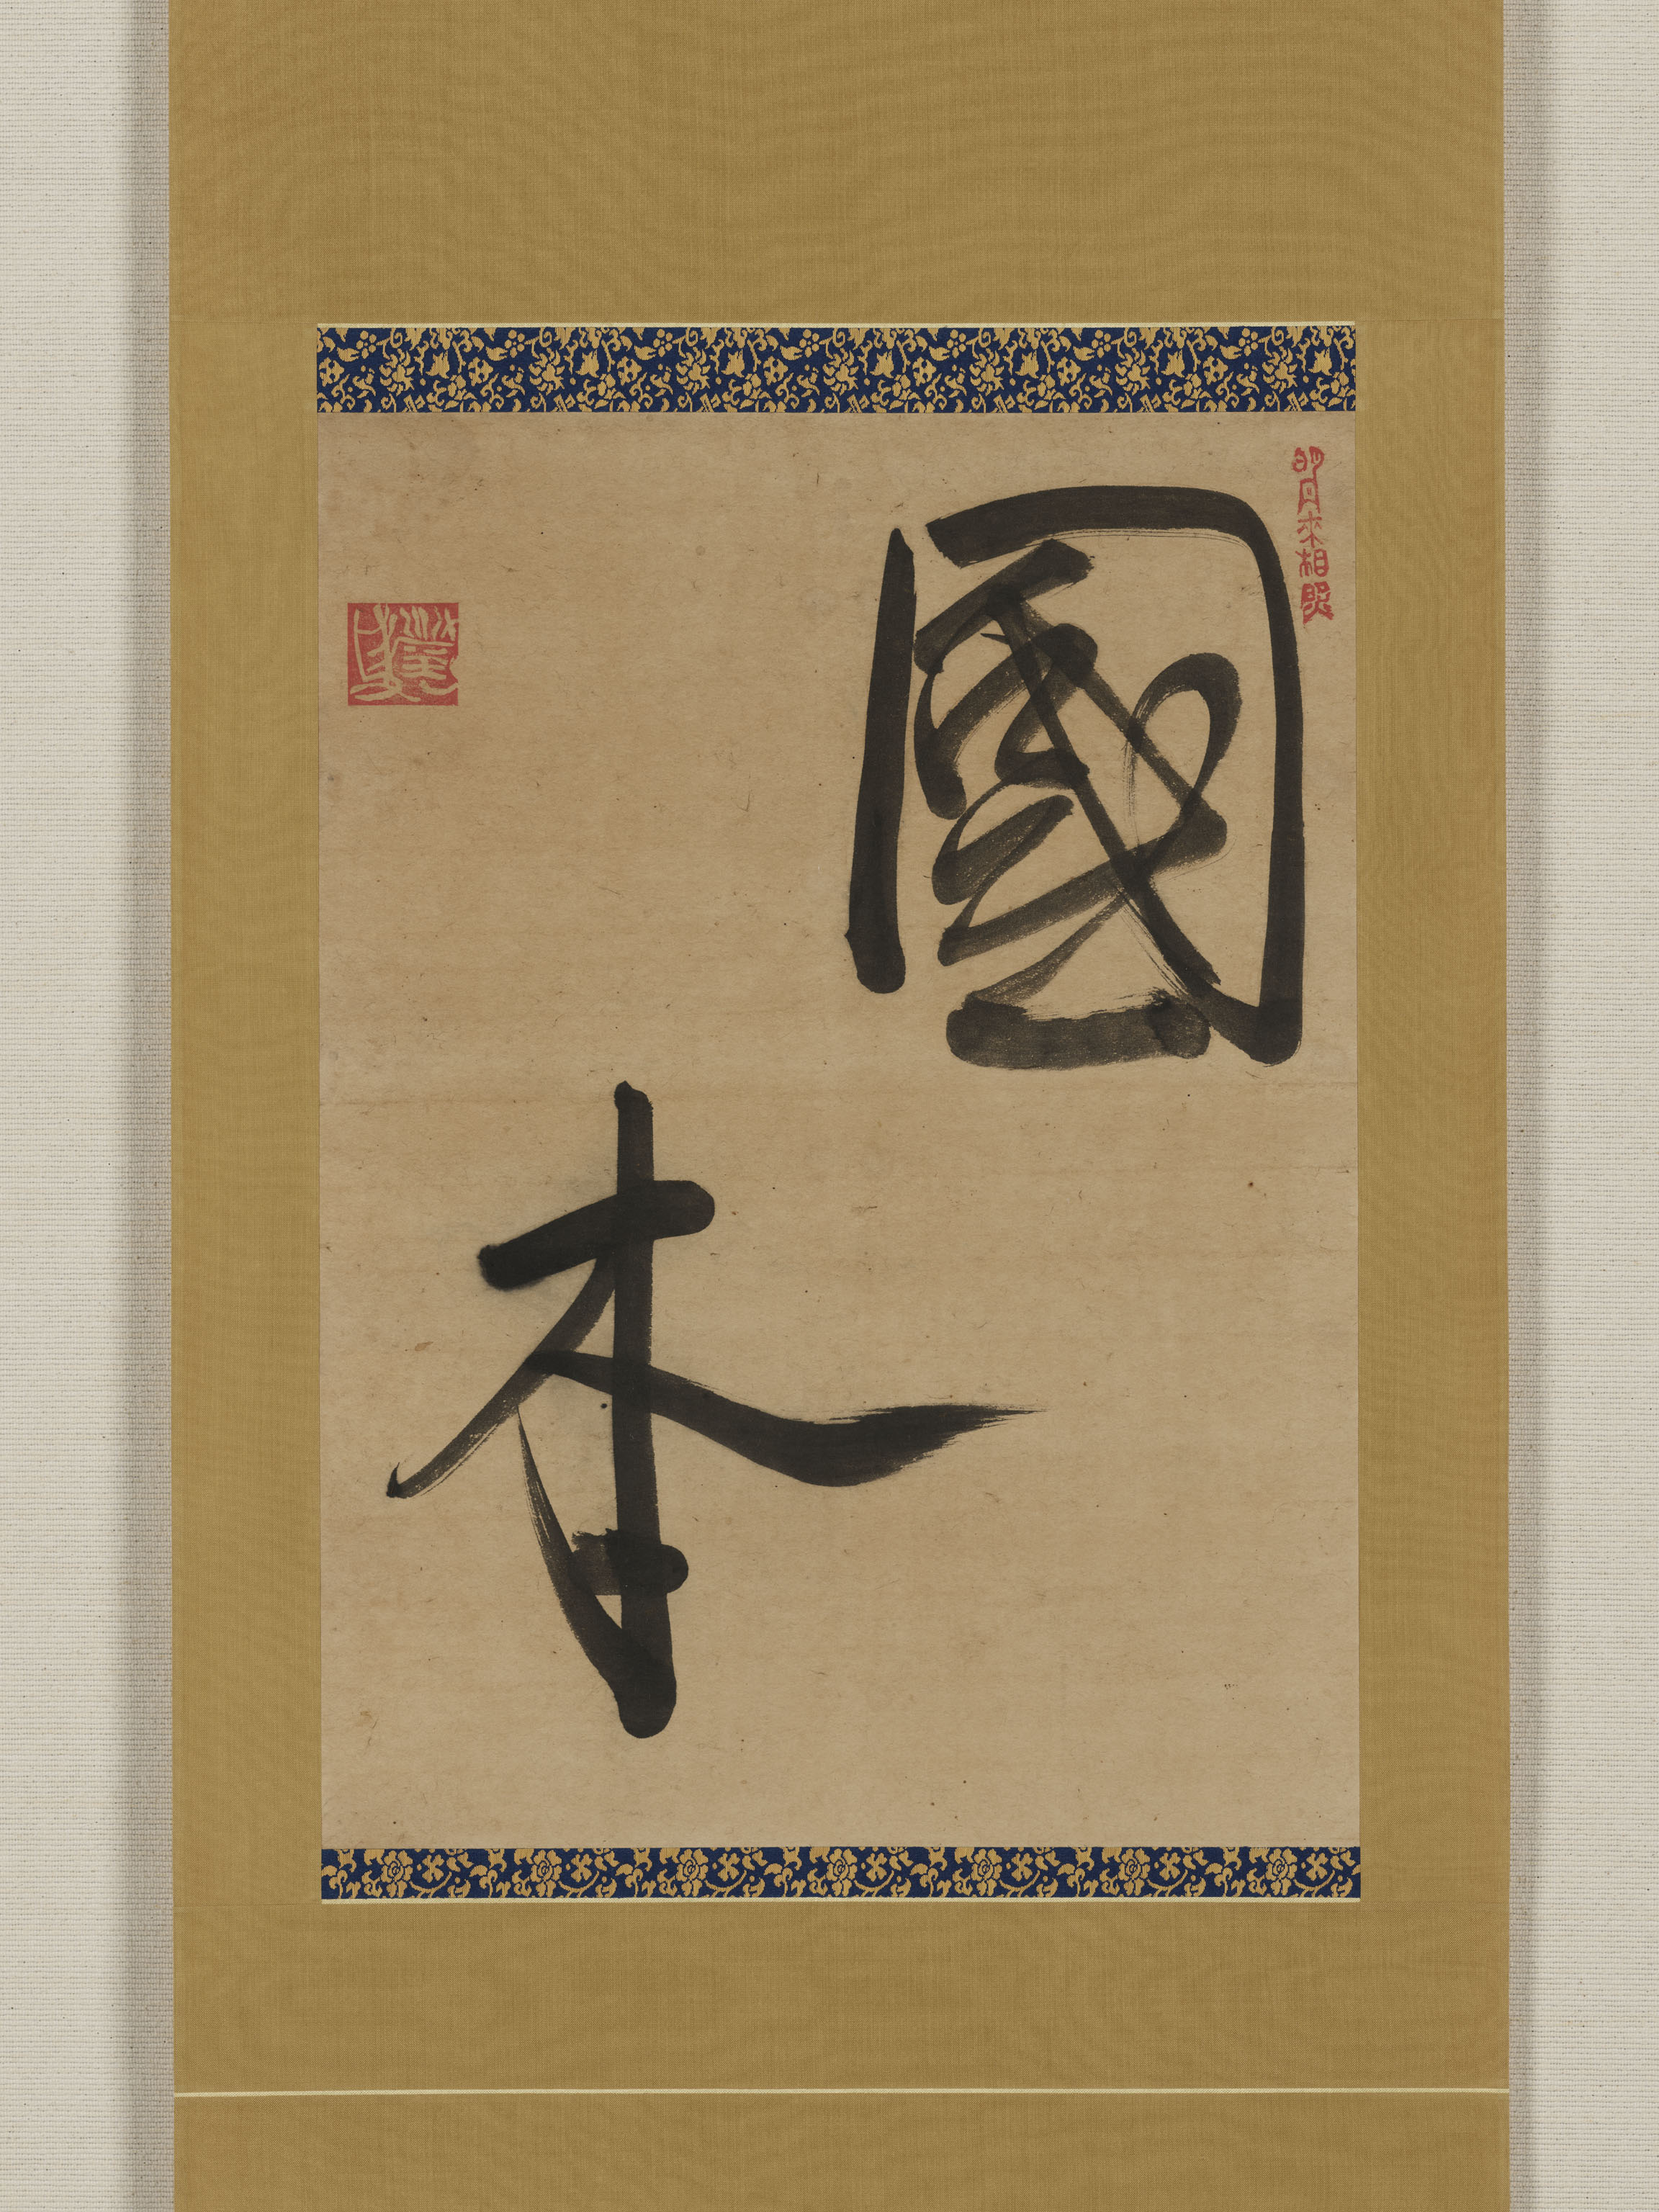 國
本
明月來相照